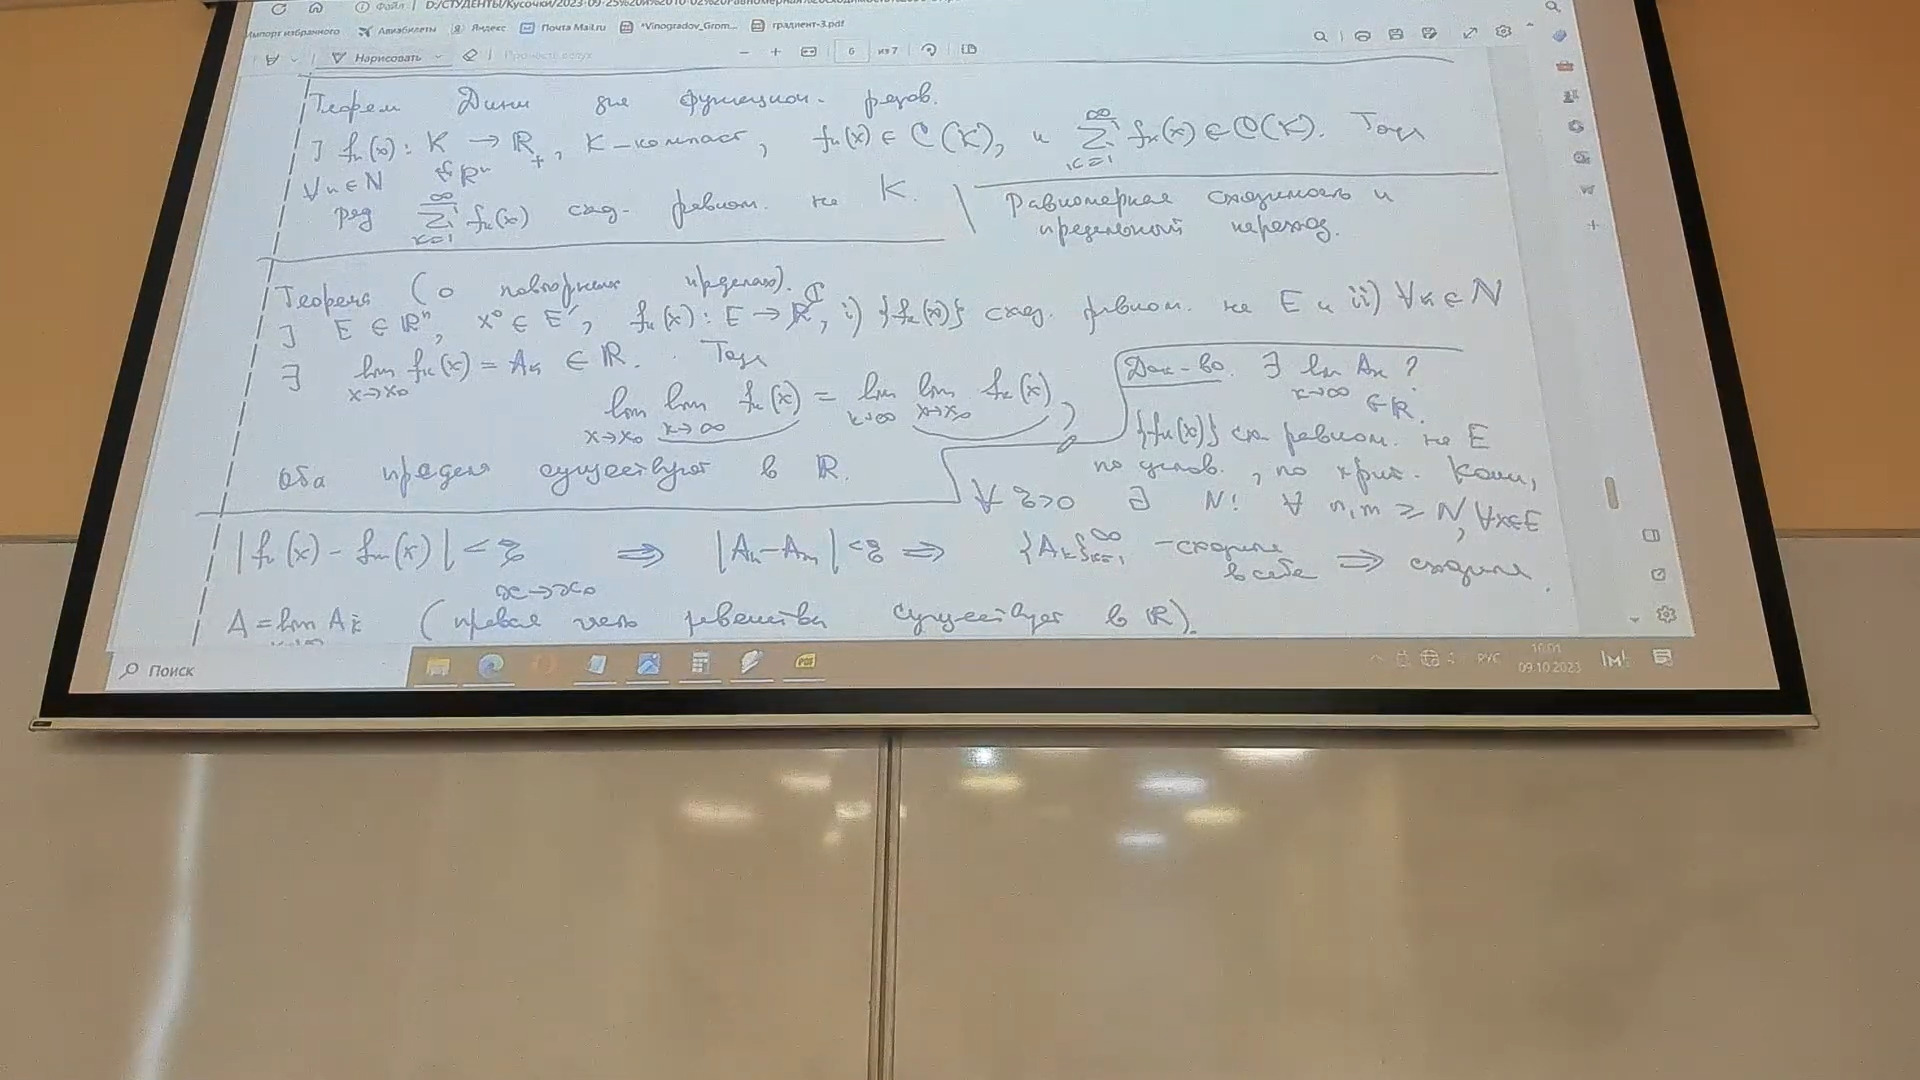 Файл | D:/СТУДЕНТЫ/Кусочки/2023-09-25%20и%2010-02%20Равномерная%20сходимость
Импорт избранного Авиабилеты Яндекс Почта Mail.ru *Vinogradov_Grom... градиент-3.pdf
Нарисовать 6 из 7
Теорема Дини для функцион. рядов.
∃ fₙ(x): K → ℝ₊, K – компакт, fₙ(x) ∈ C(K), и ∑_{k=1}^{∞} fₖ(x) ∈ C(K). Тогда
∀n∈ℕ ℝⁿ
ряд ∑_{k=1}^{∞} fₖ(x) сход. равном. на K.
Равномерная сходимость и
предельный переход.
Теорема (о повторных пределах).
∃ E ∈ ℝⁿ, x⁰ ∈ E′, fₖ(x): E → ℝ, i) {fₖ(x)} сход. равном. на E и ii) ∀k ∈ ℕ
∃ lim_{x→x₀} fₖ(x) = Aₖ ∈ ℝ. Тогда
lim_{x→x₀} lim_{k→∞} fₖ(x) = lim_{k→∞} lim_{x→x₀} fₖ(x),
оба предела существуют в ℝ.
Док-во. ∃ lim_{k→∞} Aₖ ?
∈ ℝ.
{fₖ(x)} сх. равном. на E
по услов., по крит. Коши,
∀ ε>0 ∃ N: ∀ n,m ≥ N, ∀x∈E
|fₙ(x) – fₘ(x)| < ε ⟹ |Aₙ – Aₘ| < ε ⟹ {Aₖ}_{k=1}^{∞} – сходится в себе ⟹ сходится.
x→x₀
A = lim Aₖ (правая часть равенства существует в ℝ).
Поиск
РУС 10:01
09.10.2023